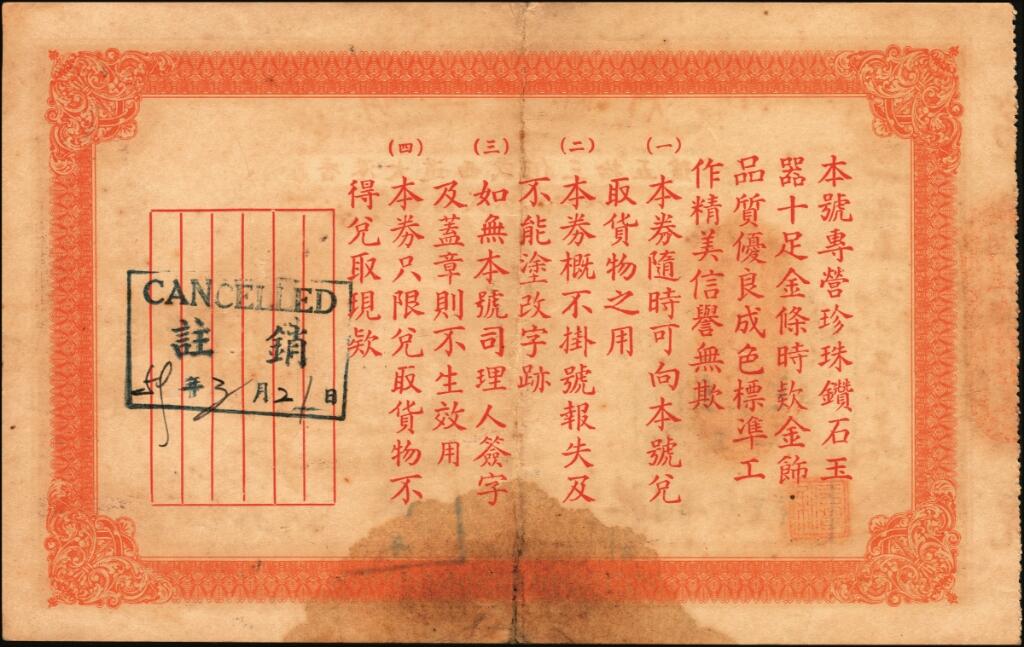 本號專營珍珠鑽石玉
器十足金條時款金飾
品質優良成色標準工
作精美信譽無欺
(一)
本券隨時可向本號兌
取貨物之用
(二)
本券概不掛號報失及
不能塗改字跡
(三)
如無本號司理人簽字
及蓋章則不生效用
(四)
本券只限兌取貨物不
得兌取現款
CANCELLED
註銷
59年3月21日